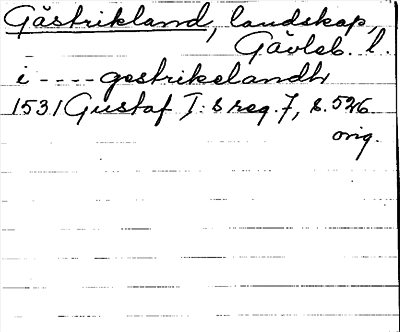 Gästrikland, landskap,
Gävleb. l.
i ---- gestrikelandh
1531 Gustaf I:s reg. 7, s. 526
orig.